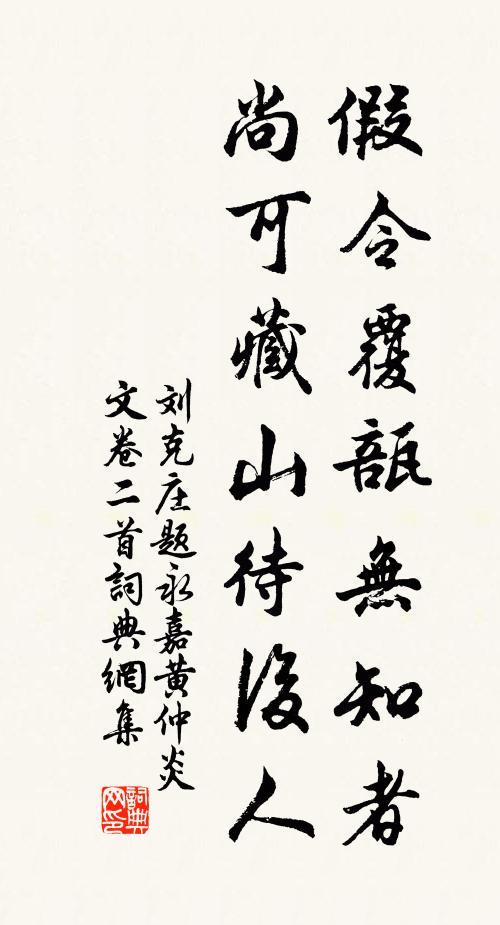 假令覆瓿無知者
尚可藏山待後人
刘克庄题永嘉黄仲炎
文卷二首詞典網集
詞典
网印